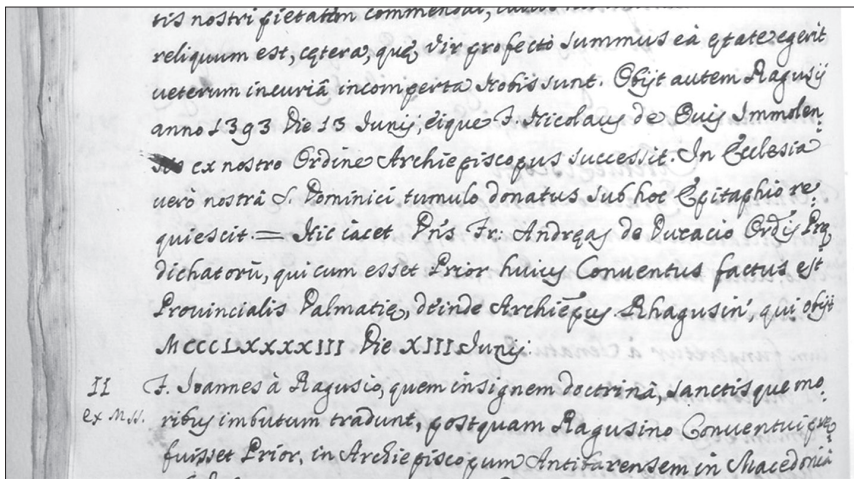 tis nostri pietatem commendat,
reliquum est, cętera, quę Vir profectò summus eà ętate egerit
ueterum incuriâ incomperta Nobis sunt. Obijt autem Ragusij
anno 1393 Die 13 Junij, eique F. Nicolaus de Ouis Immolen:
sis ex nostro Ordine Archiepiscopus successit. In Ecclesia
uerò nostrâ S. Dominici tumulo donatus sub hoc Epitaphio re:
quiescit = Hic iacet Dn̄s Fr: Andręas de Duracio Ordīs Prę
dichatorū, qui cum esset Prior huius Conuentus factus est
Prouincialis Dalmatię, deinde Archiēpus Rhagusin', qui obijt
MCCCLXXXXIII Die XIII Junij:
II F. Joannes à Ragusio, quem insignem doctrinâ, sanctisque mo:
ex M.SS. ribus imbutum tradunt, postquam Ragusino Conuentui prę:
fuisset Prior, in Archiepiscopum Antibarensem in Macedoniâ